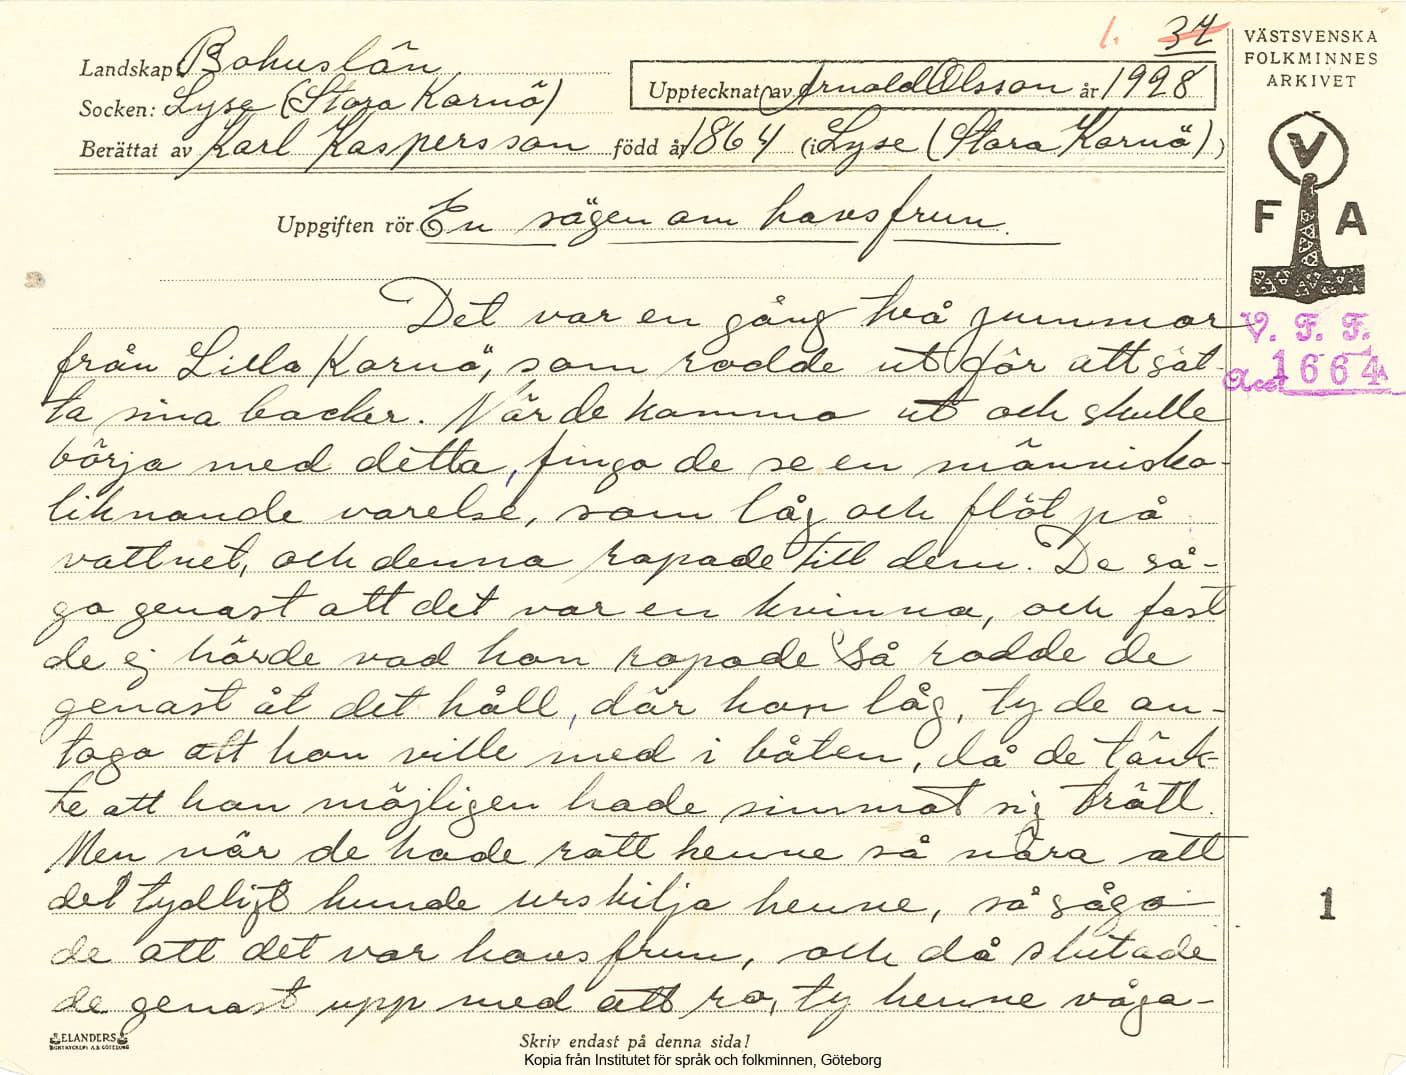 1. 37
Landskap: Bohuslän
Socken: Lyse (Stora Kornö)
Berättat av Karl Kaspersson
Upptecknat av Arnold Olsson år 1928
född år 1864 (i Lyse (Stora Kornö))
Uppgiften rör En sägen om havsfrun.
Det var en gång två gummor
från Lilla Kornö, som rodde ut för att sät-
ta sina backer. När de kommo ut och skulle
börja med detta, fingo de se en människo-
liknande varelse, som låg och flöt på
vattnet, och denna ropade till dem. De så-
go genast att det var en kvinna, och fast
de ej hörde vad hon ropade så rodde de
genast åt det håll, där hon låg, ty de an-
togo att hon ville med i båten, då de tänk-
te att hon möjligen hade simmat sig trött.
Men när de hade rott henne så nära att
de tydligt kunde urskilja henne, så sågo
de att det var havsfrun, och då slutade
de genast upp med att ro, ty henne våga-
ELANDERS
BOKTRYCKERI A.B. GÖTEBORG
Skriv endast på denna sida!
Kopia från Institutet för språk och folkminnen, Göteborg
VÄSTSVENSKA
FOLKMINNES
ARKIVET
V
F A
V. F. F.
Acc 1664
1